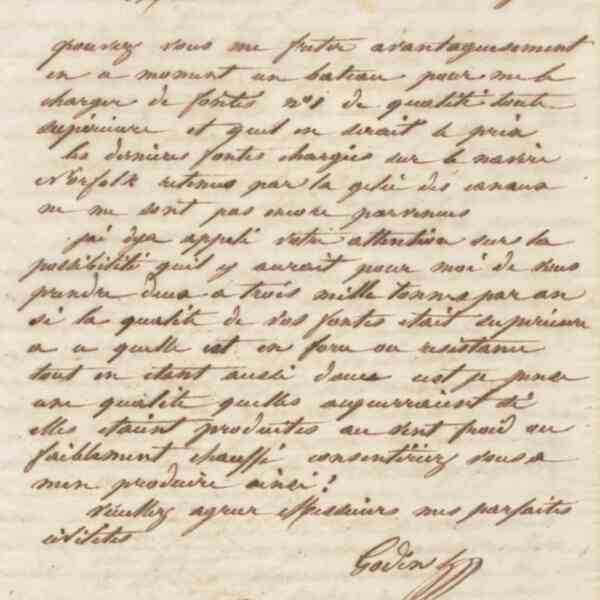 pouvez vous me freter avantageusement
en ce moment un bateau pour me le
charger de fontes n° 1 de qualité toute
supérieure et quel en serait le prix
les dernieres fontes chargées sur le navire
Norfolk retenus par la gelée des canaux
ne me sont pas encore parvenues
j'ai deja appelé votre attention sur la
possibilité qu'il y aurait pour moi de vous
prendre deux a trois mille tonnes par an
si la qualité de vos fontes etait superieure
a ce quelle est en force ou resistance
tout en etant aussi douce cest je pense
une qualité quelles acquerraient si
elles etaient produites au vent froid ou
faiblement chauffé consentiriez vous a
men produire ainsi?
Veuillez agreer Messieurs mes parfaites
civilités
Godin